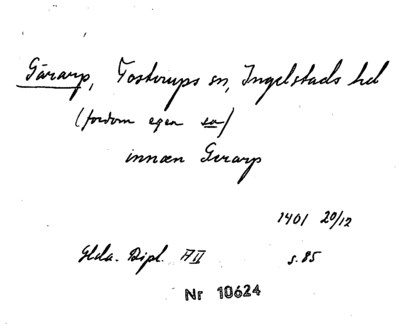 Gärarp, Tosterups sn, Ingelstads hd
(fordom egen sn)
innæn Gerarp
1401 20/12
Glda. Dipl. A II s. 85
Nr 10624